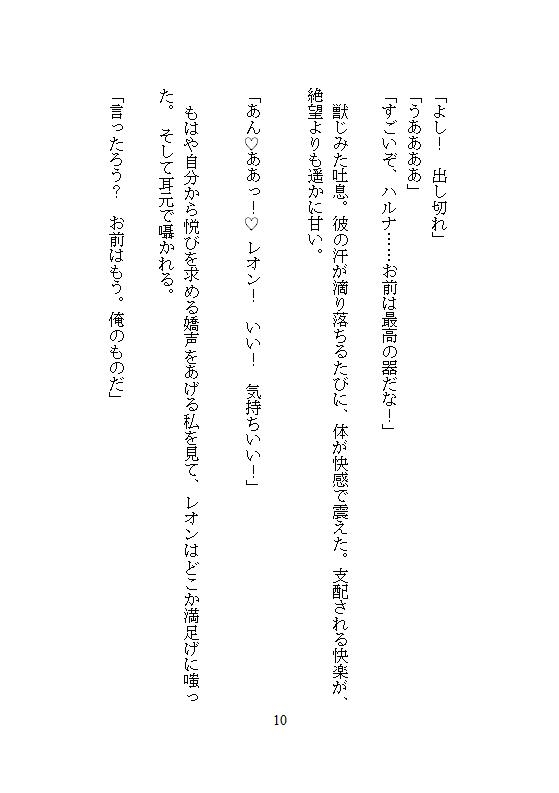 「よし！　出し切れ」
「うああああ」
「すごいぞ、ハルナ……お前は最高の器だな！」
獣じみた吐息。彼の汗が滴り落ちるたびに、体が快感で震えた。支配される快楽が、
絶望よりも遥かに甘い。
「あん♡ああっ！♡ レオン！　いい！　気持ちいい！」
もはや自分から悦びを求める嬌声をあげる私を見て、レオンはどこか満足げに嗤っ
た。　そして耳元で囁かれる。
「言ったろう？　お前はもう。俺のものだ」
10